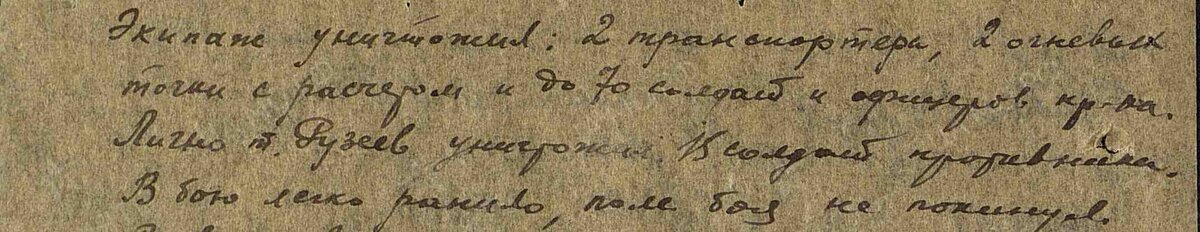 Экипаж уничтожил: 2 транспортера, 2 огневых
точки с расчетом и до 70 солдат и офицеров пр-ка.
Лично т. Рузеев уничтожил 15 солдат противника.
В бою легко ранило, поле боя не покинул.